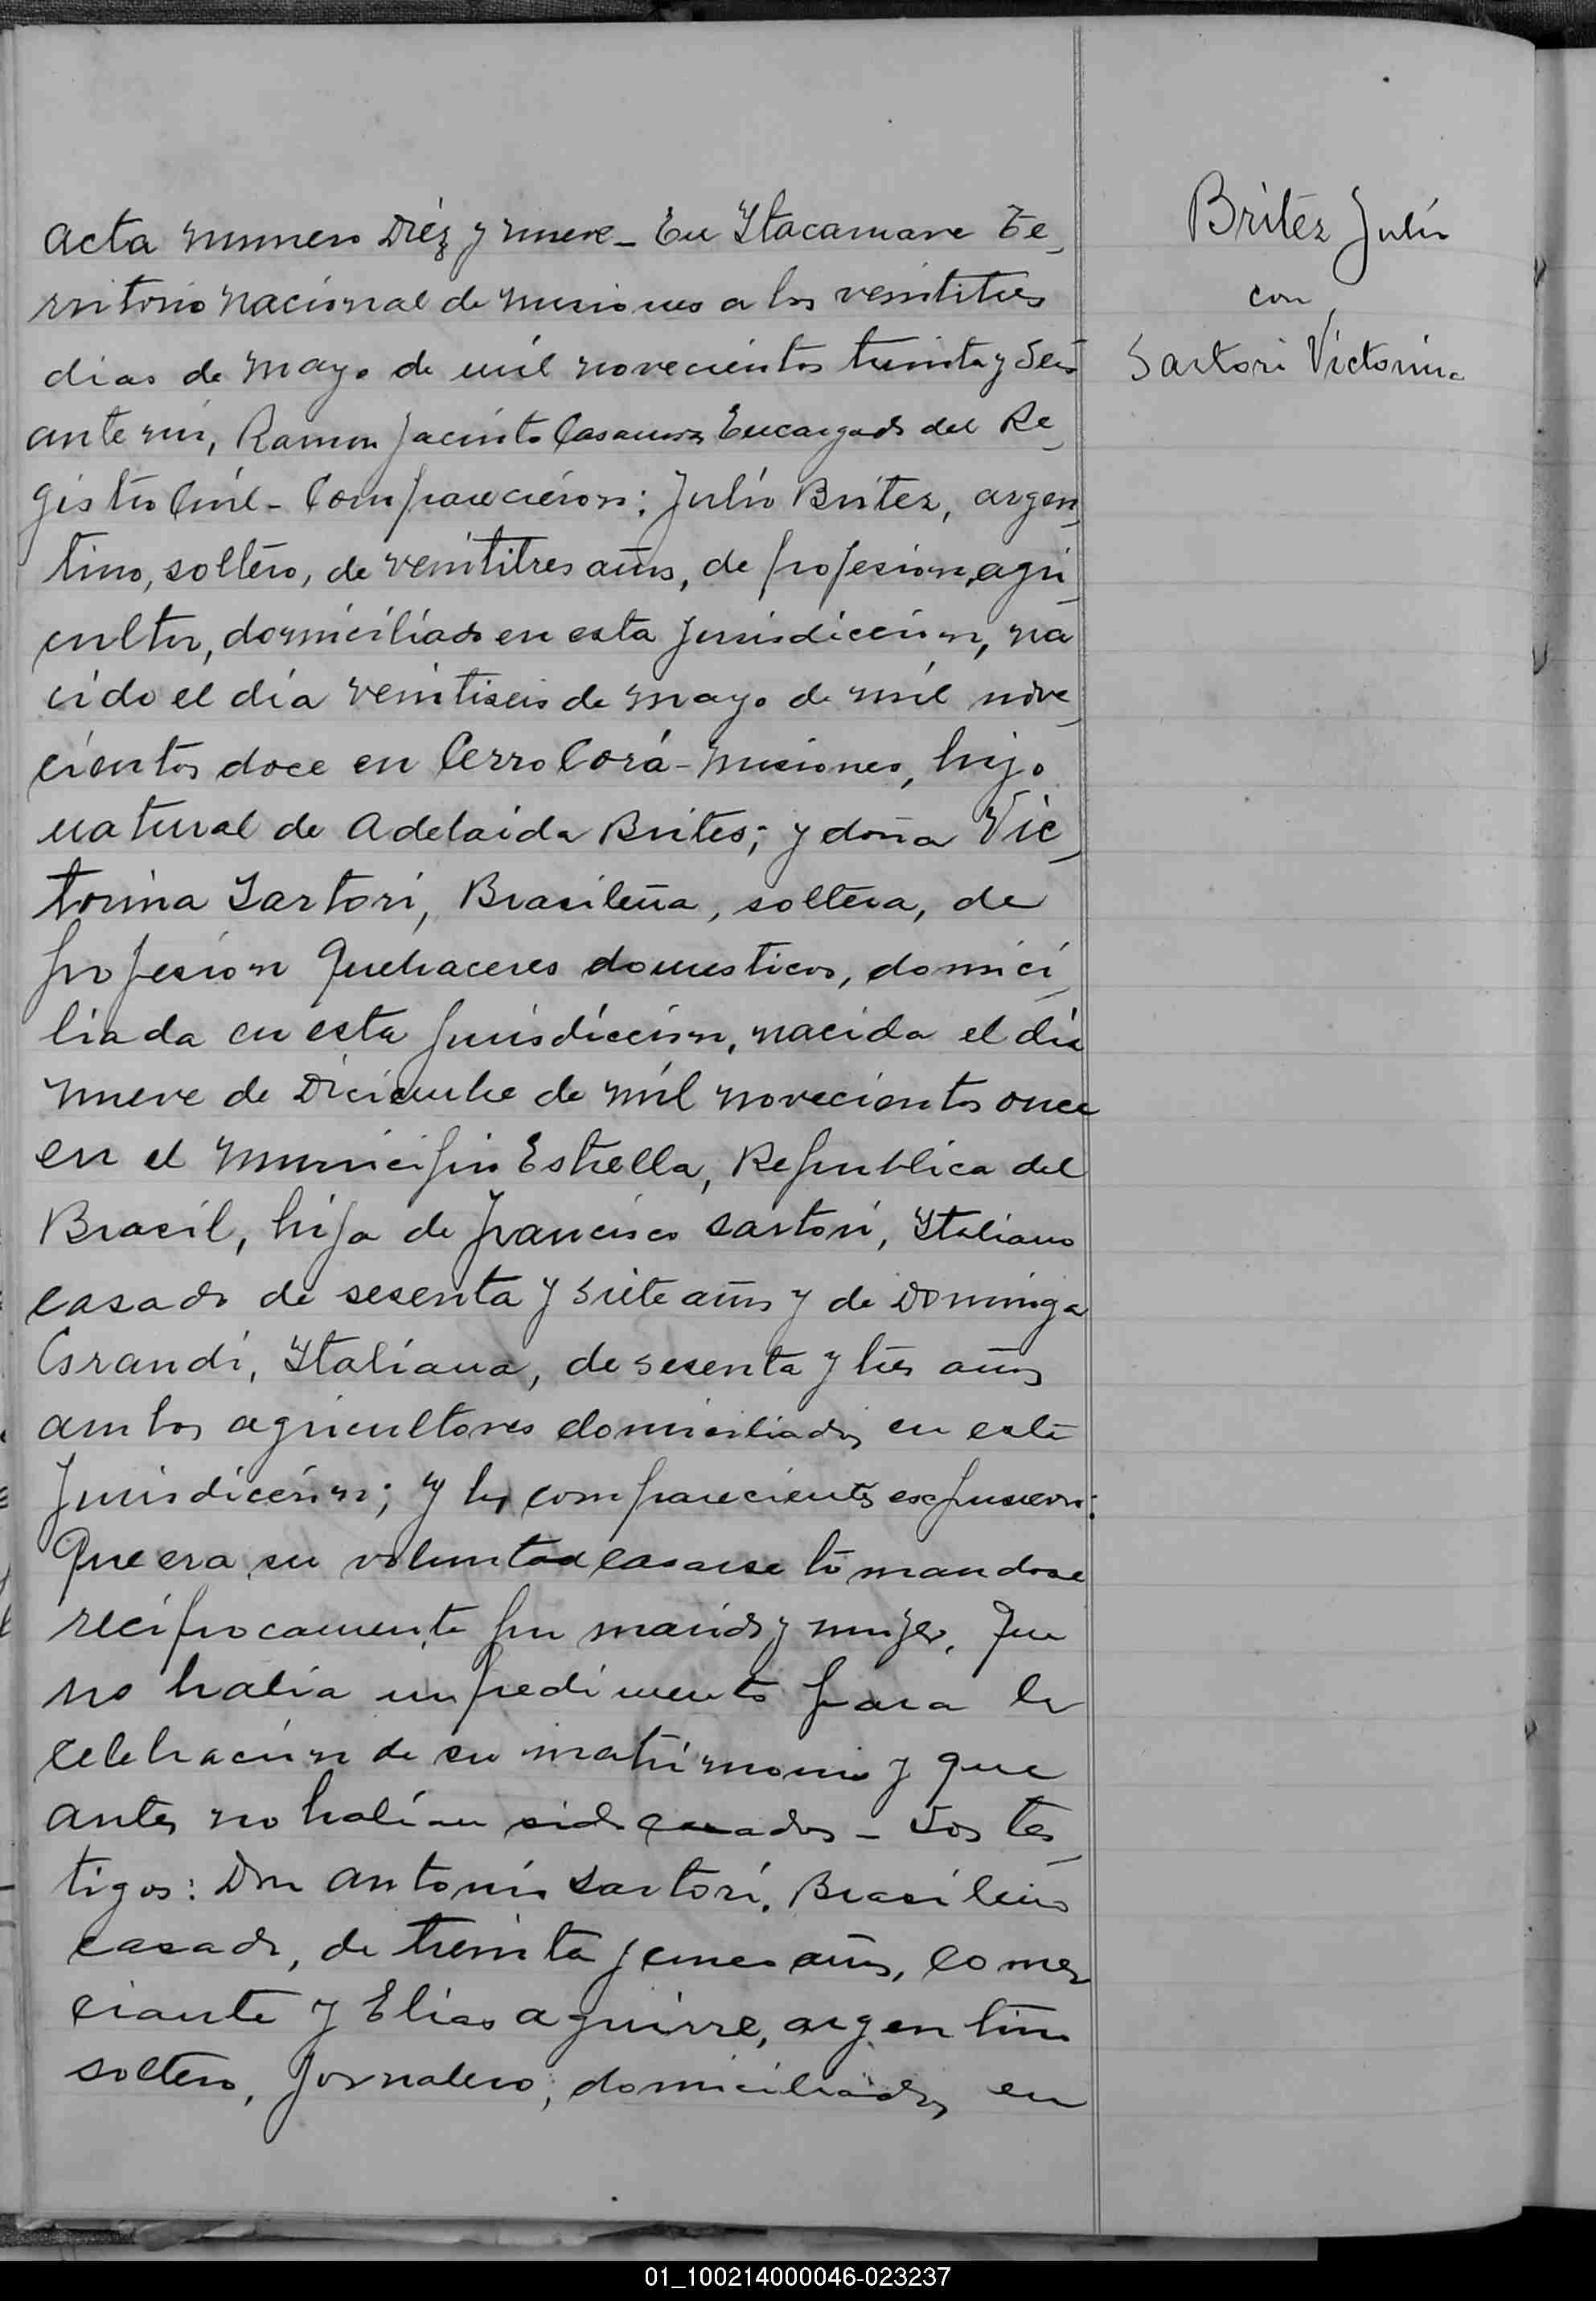 Acta numero Diéz y nueve - En Ytacaruare Te-
rritorio Nacional de Misiones a los veintitres
dias de Mayo de mil novecientos treinta y Seis
ante mi, Ramon Jacinto Casanova Encargado del Re-
gistro Civil - Comparecieron: Julio Britez, argen-
tino, soltero, de veintitres años, de profesion, agri-
cultor, domiciliado en esta Jurisdiccion, na
cido el día veintiseis de Mayo de mil nove-
cientos doce en Cerro Corá - Misiones, hijo
natural de Adelaida Brites; y doña Vic-
torina Sartori, Brasileña, soltera, de
profesion Quehaceres domesticos, domici-
liada en esta Jurisdiccion, nacida el día
nueve de Diciembre de mil novecientos once
en el Municipio Estrella, Republica del
Brasil, hija de Francisco Sartori, Ytaliano
casado de sesenta y siete años y de Dominga
Grandi, Ytaliana, de sesenta y tres años
ambos agricultores domiciliados en esta
Jurisdiccion; y los comparecientes expusieron:
Que era su voluntad casarse tomandose
reciprocamente por marido y mujer, Que
no habia impedimento para la
celebracion de su matrimonio y que
antes no habian sido casados - Los tes-
tigos: Don Antonio Sartori, Brasileño
casado, de treinta y cinco años, comer
ciante y Elias Aguirre, argentino
soltero, Jornalero, domiciliados en
Britez Julio
con
Sartori Victorina
01_100214000046-023237